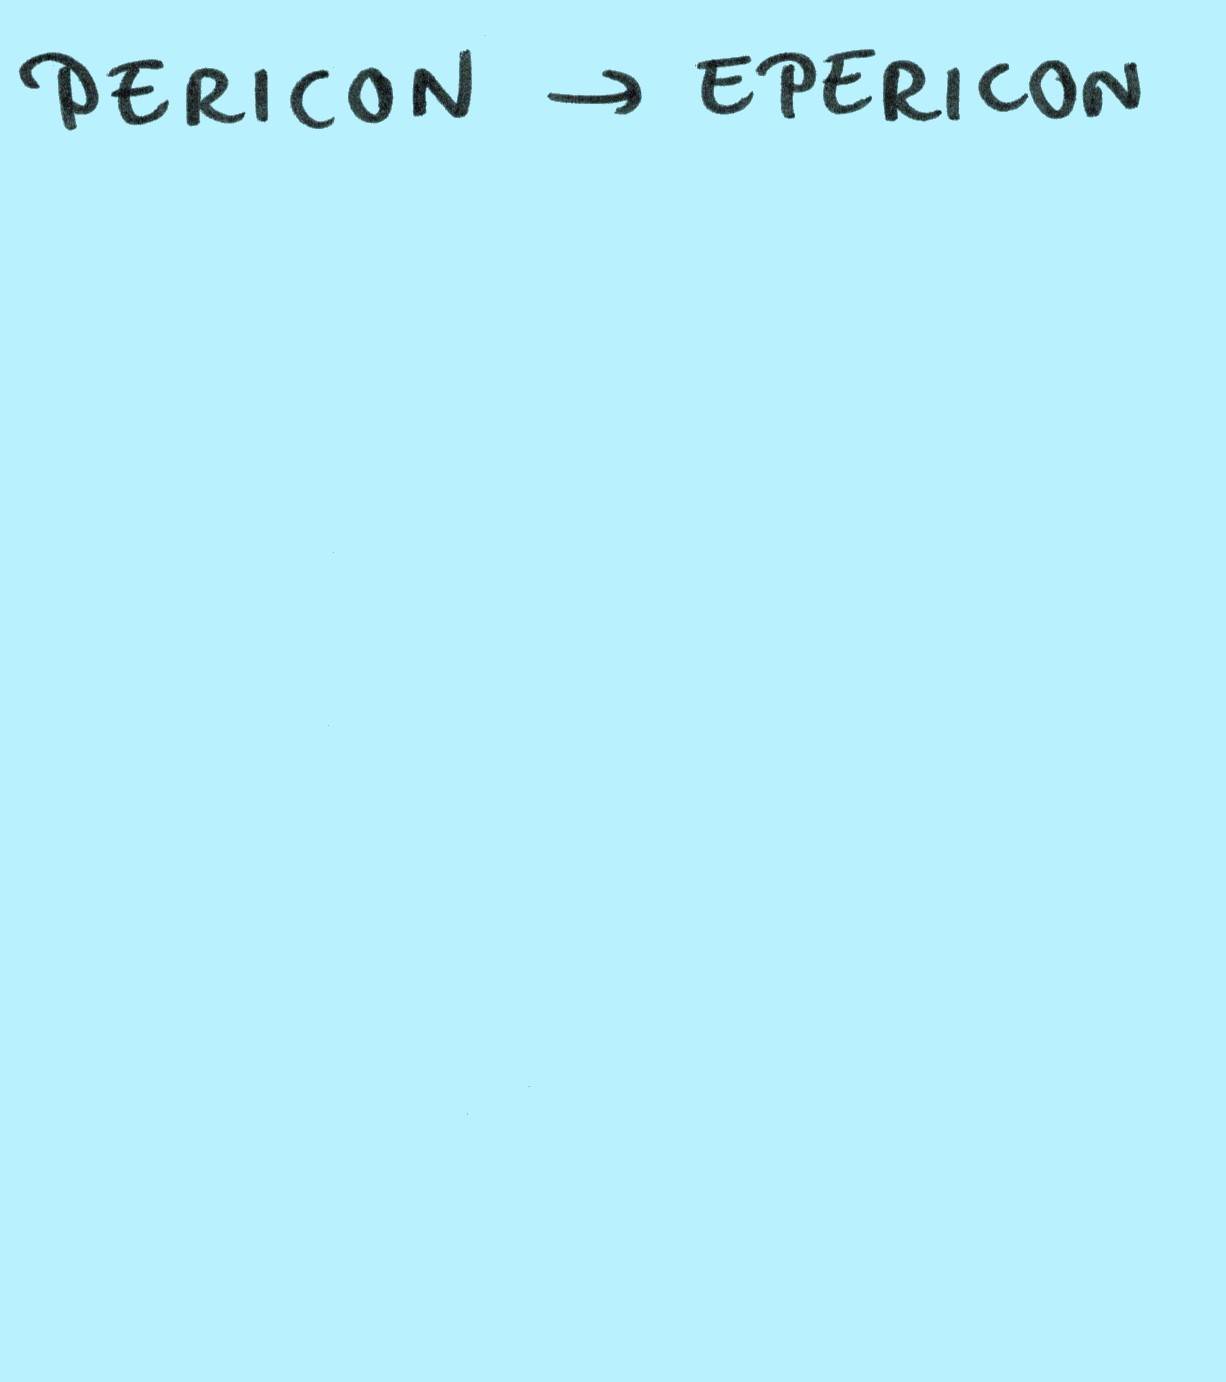 PERICON → EPERICON